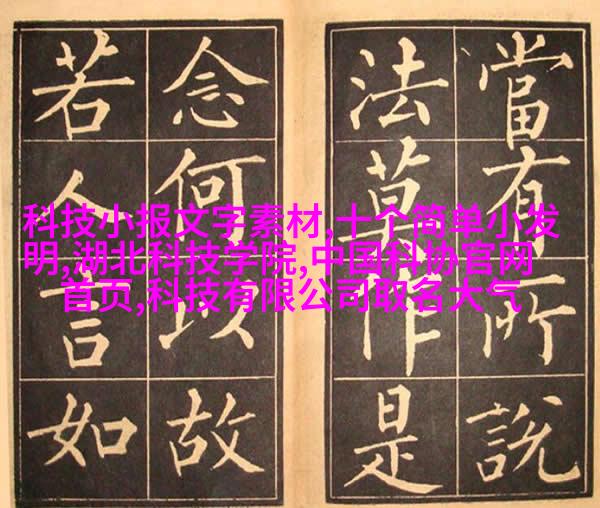 當有所說
法莫作是
念何以故
若人言如
科技小报文字素材,十个简单小发
明,湖北科技学院,中国科协官网
首页,科技有限公司取名大气